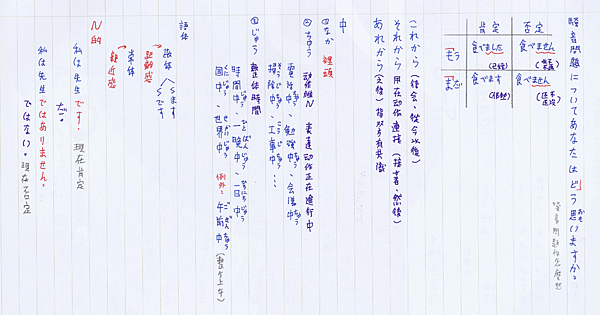 騒音問題についてあなたはどう思いますか。
噪音問題你怎麼想
肯定 否定
もう 食べました 食べません
まだ 食べます 食べません
これから (後會、從今以後)
それから 用在动作連接 (接著、然後)
あれから (之後) 指双方有共識
中
①なか 裡頭
②ちゅう 动作性N 表達动作正在進行中
電話中、勉強中、会議中
掃除中、工事中…
③じゅう 整体時間
時間中、一晩中、一日中
国中、世界中 例外:午前中 (整个上午)
語体
敬体 〜ます 〜です
距離感
常体
親近感
N的
私は先生です。 現在肯定
だ。
私は先生ではありません。
ではない。 現在否定